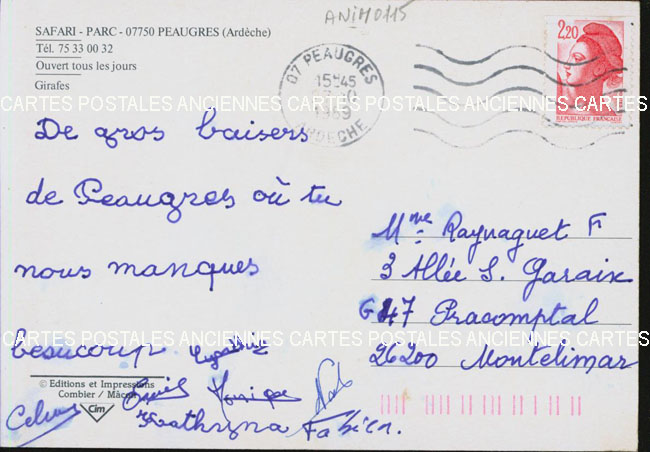 ANIM0115
SAFARI - PARC - 07750 PEAUGRES (Ardèche)
Tél. 75 33 00 32
Ouvert tous les jours
Girafes
07 PEAUGRES
15H45
1989
ARDECHE
2,20
REPUBLIQUE FRANÇAISE
CARTES POSTALES ANCIENNES CARTES POSTALES ANCIENNES CARTES POSTALES ANCIENNES
De gros baisers
de Peaugres où tu
nous manques
beaucoup
Mme Raynaguet F
3 Allée S. Garaix
G47 Pracomptal
26200 Montélimar
CARTES POSTALES ANCIENNES CARTES POSTALES ANCIENNES CARTES POSTALES ANCIENNES
© Editions et Impressions
Combier / Mâcon
Cim
Kathryna Fabien.